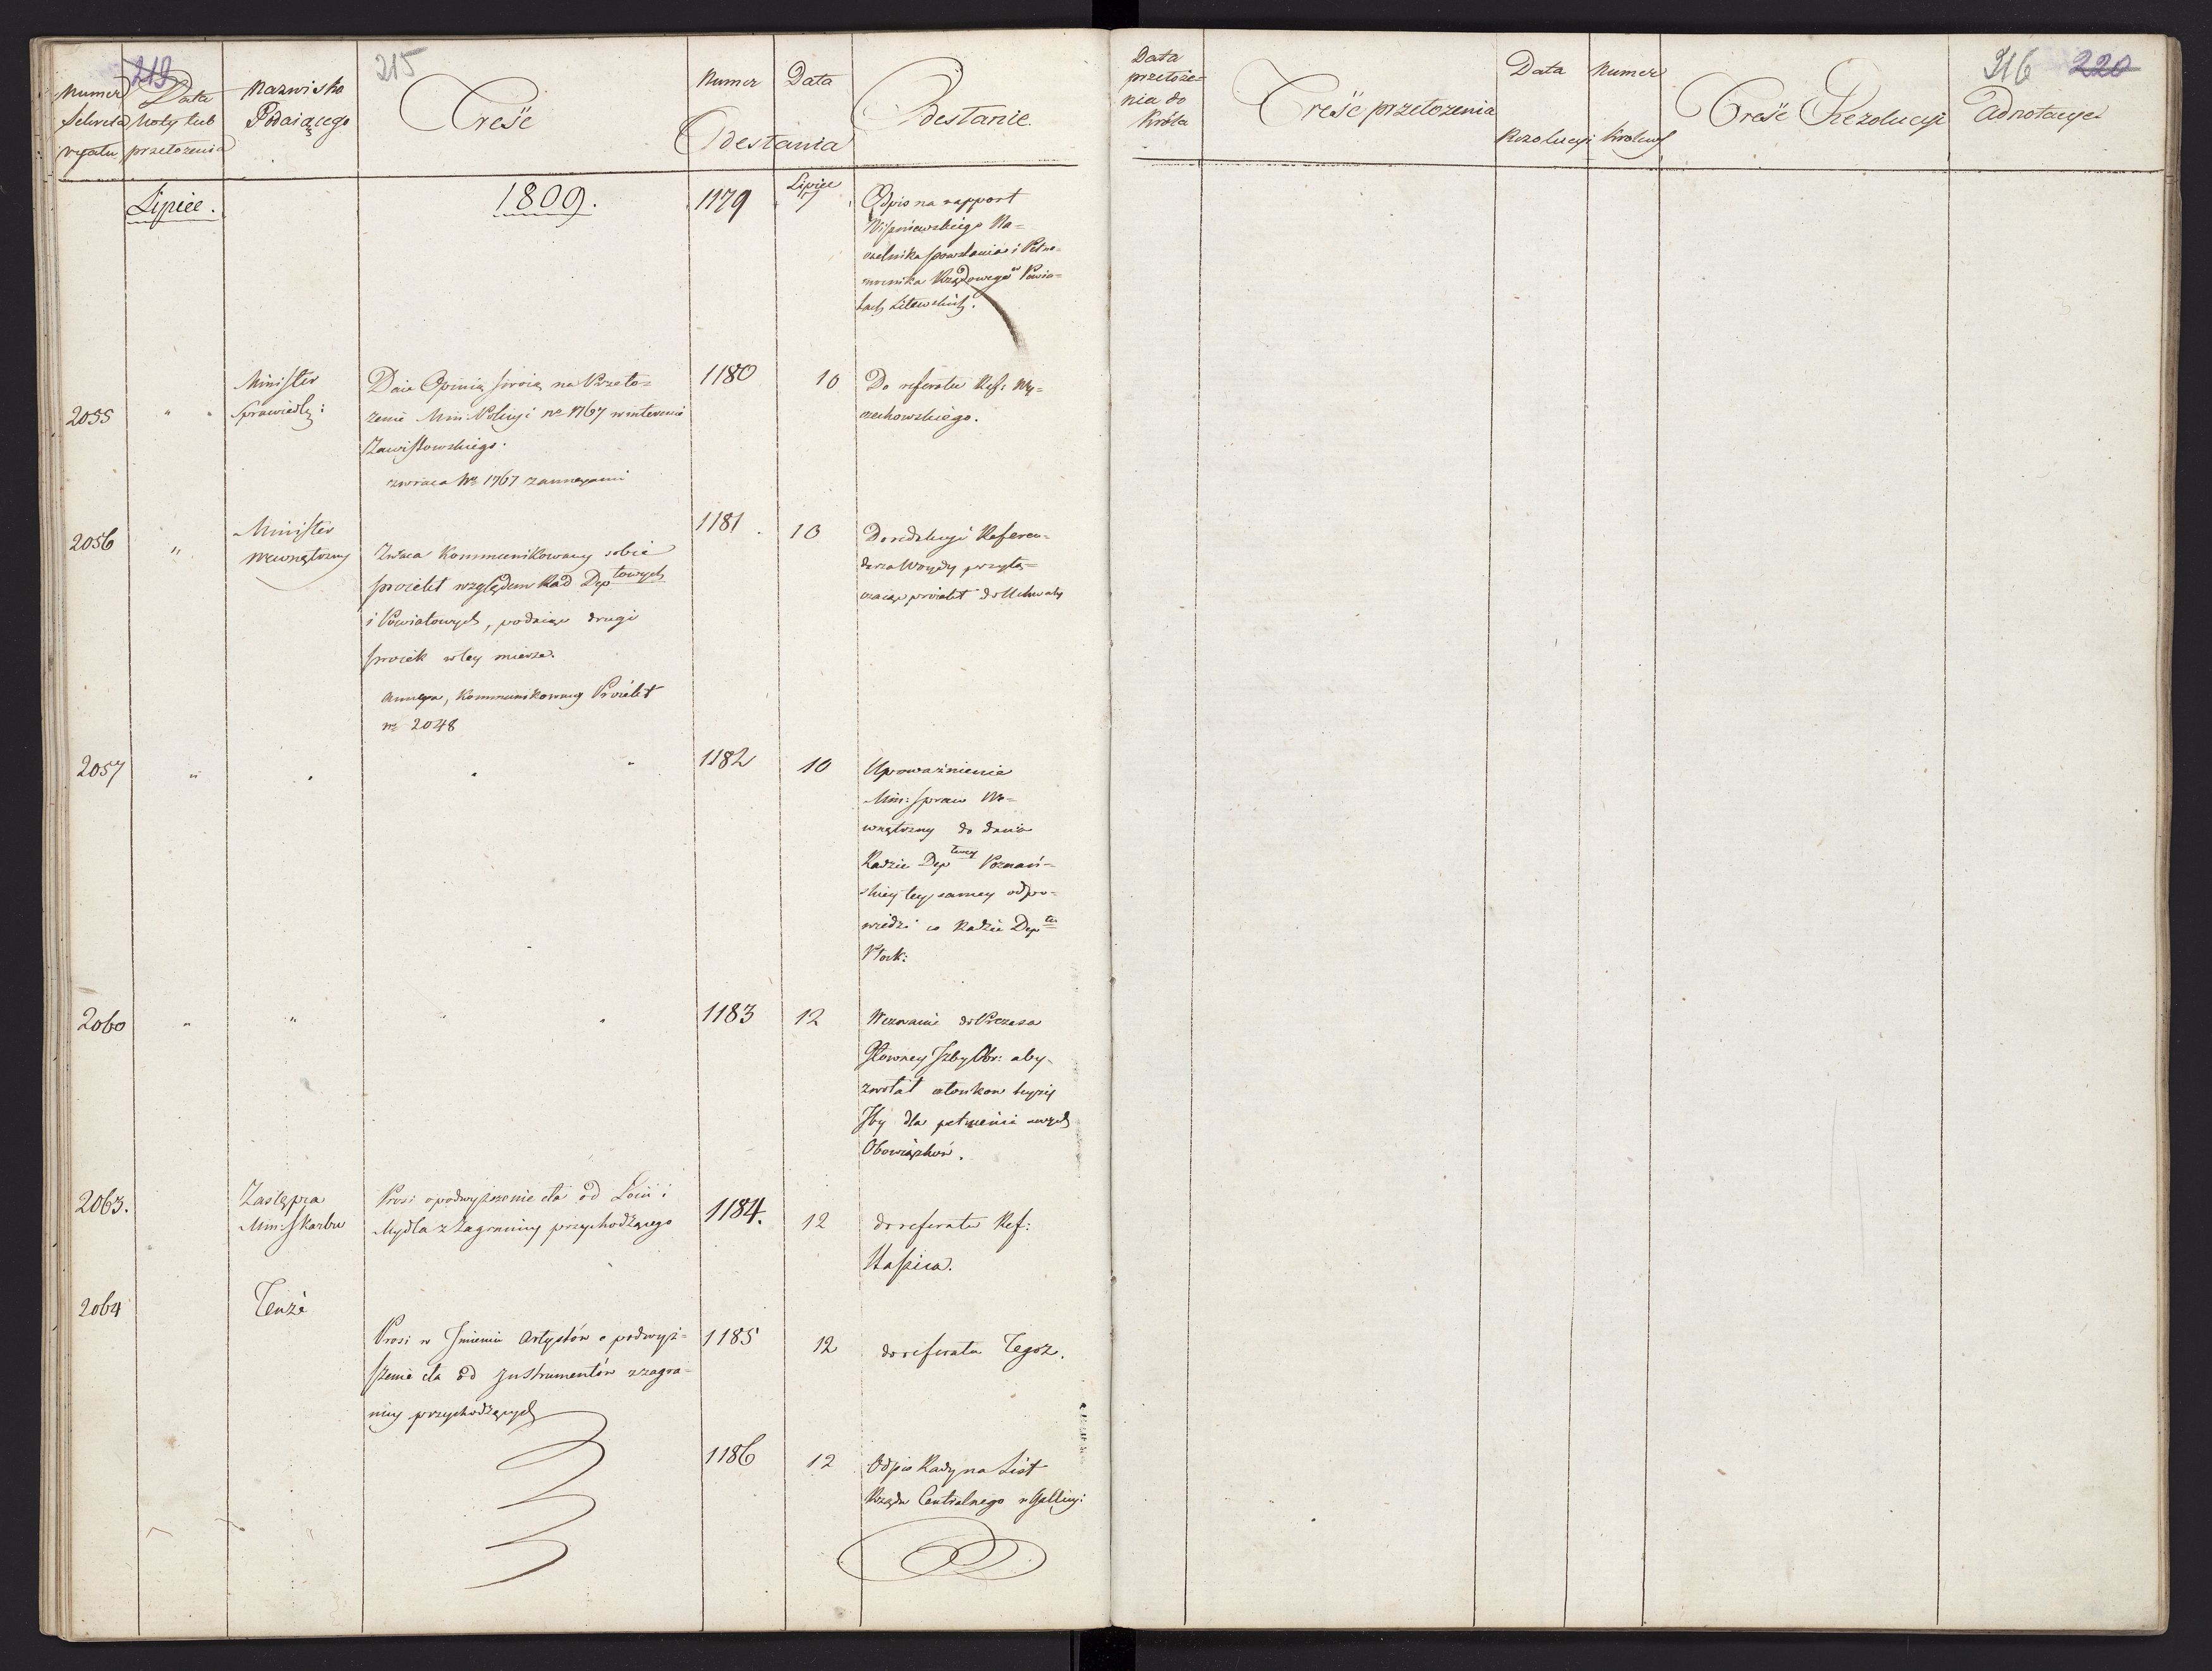 219
215
Numer Sekreta ryatu
Data Noty lub przełożenia
Nazwisko Podaiącego
Treść
Numer Data
Odesłania
Odesłanie.
Lipiec.
1809.
1179
Lipiec 7
Odpis na rapport
Wiszniewskiego Na=
czelnika powstania i Pełno=
mocnika Rządowego w Powia=
tach Litewskich.
2055
" "
Minister
Sprawiedlz:
Daie Opinią swoią na Przeło=
żenie Min: Policyi № 1767 w interessie
Zawistowskiego.
zwraca № 1767 z annexami
1180
10
Do referatu Ref: Wy=
czechowskiego.
2056
"
Minister
Wewnętrzny
Zwraca Kommunikowany sobie
proiekt względem Rad Deptowych
i Powiatowych, podaiąc drugi
proiek w tey mierze.
annexa, Kommunikowany Proiekt
№ 2048
1181.
10
Do redakcyi Referen=
darza Woydy przyłą=
czaiąc proiekt do Uchwały
2057
"
1182
10
Upoważnienie
Min: Spraw We=
wnętrzny do dania
Radzie Deptowey Poznań=
skiey tey samey odpo=
wiedzi co Radzie Depte
Płock:
2060
" "
1183
12
Wezwanie do Prezesa
Główney Izby Obr: aby
zwołał członkow teyże
Izby dla pełnienia swych
Obowiązków.
2063.
Zastępca
Min: Skarbu
Prosi o podwyższenie cła od Łoiu i
Mydła z Zagranicy przychodzącego
1184.
12
do referatu Ref:
Staszica.
2064
Tenże
Prosi w Imieniu Artystów o podwyż=
szenie cła od Instrumentów z zagra=
nicy przychodzących
1185
12
do referatu Tegoż.
1186
12
Odpis Rady na List
Rządu Centralnego w Gallicyi
Data
przełoże=
nia do
Króla
Treść przełożenia
Data Numer
Rezolucyi Królews
Treść Rezolucyi
316 220
Adnotacye